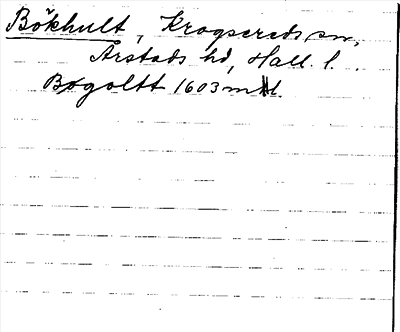 Bökhult, Krogsereds sn,
Årstads hd, Hall. l.
Bøgoltt 1603